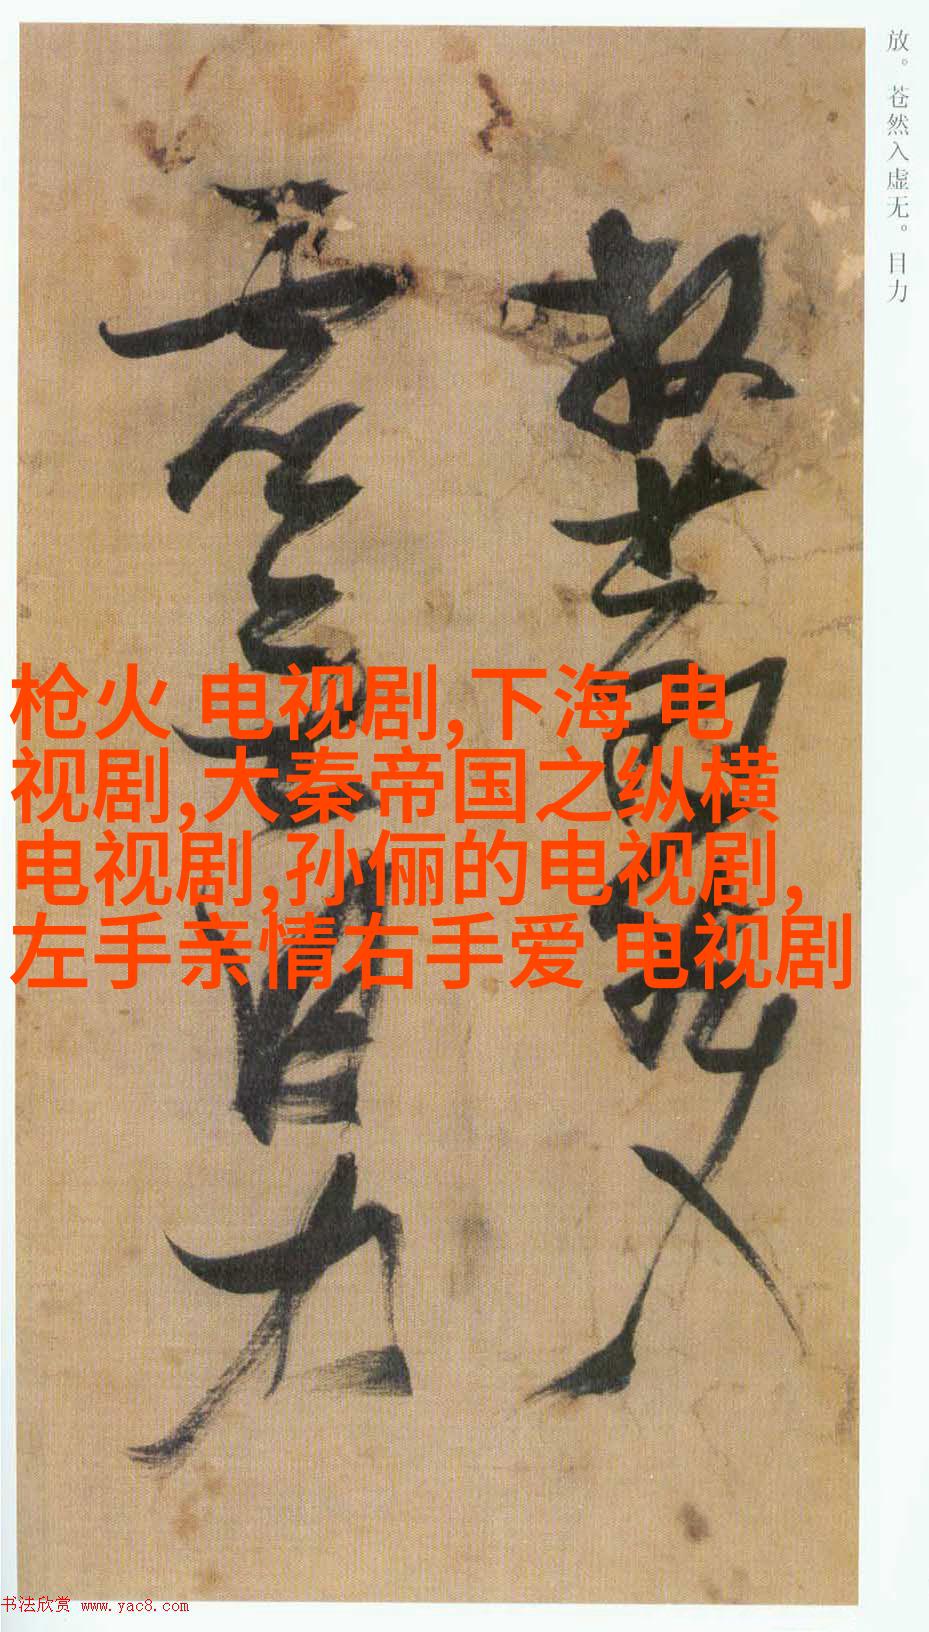 放。苍然入虚无。目力
放蒼然入
虛無目力
枪火 电视剧,下海 电
视剧,大秦帝国之纵横
电视剧,孙俪的电视剧,
左手亲情右手爱 电视剧
书法欣赏 www.yac8.com